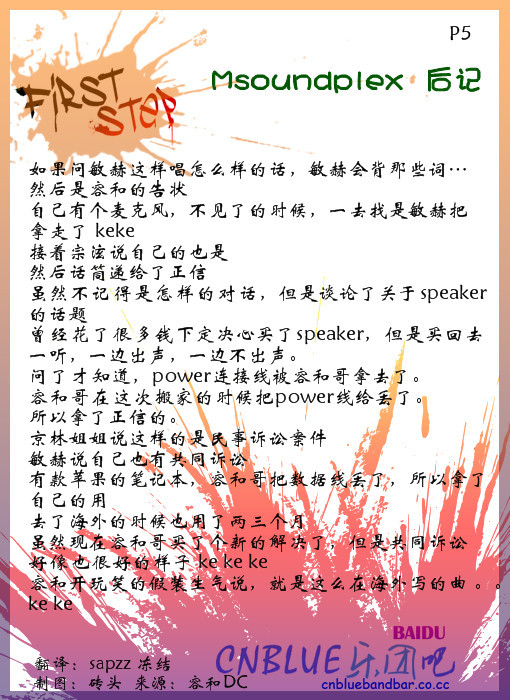 P5
FiRST
STEP
Msoundplex 后记
如果问敏赫这样唱怎么样的话，敏赫会背那些词…
然后是容和的告状
自己有个麦克风，不见了的时候，一去找是敏赫把
拿走了 keke
接着宗泫说自己的也是
然后话筒递给了正信
虽然不记得是怎样的对话，但是谈论了关于speaker
的话题
曾经花了很多钱下定决心买了speaker，但是买回去
一听，一边出声，一边不出声。
问了才知道，power连接线被容和哥拿去了。
容和哥在这次搬家的时候把power线给丢了。
所以拿了正信的。
京林姐姐说这样的是民事诉讼案件
敏赫说自己也有共同诉讼
有款苹果的笔记本，容和哥把数据线丢了，所以拿了
自己的用
去了海外的时候也用了两三个月
虽然现在容和哥买了个新的解决了，但是共同诉讼
好像也很好的样子 ke ke ke
容和开玩笑的假装生气说，就是这么在海外写的曲。。
ke ke
BAIDU
CNBLUE乐团吧
cnbluebandbar.co.cc
翻译：sapzz 冻结
制图：砖头 来源：容和DC